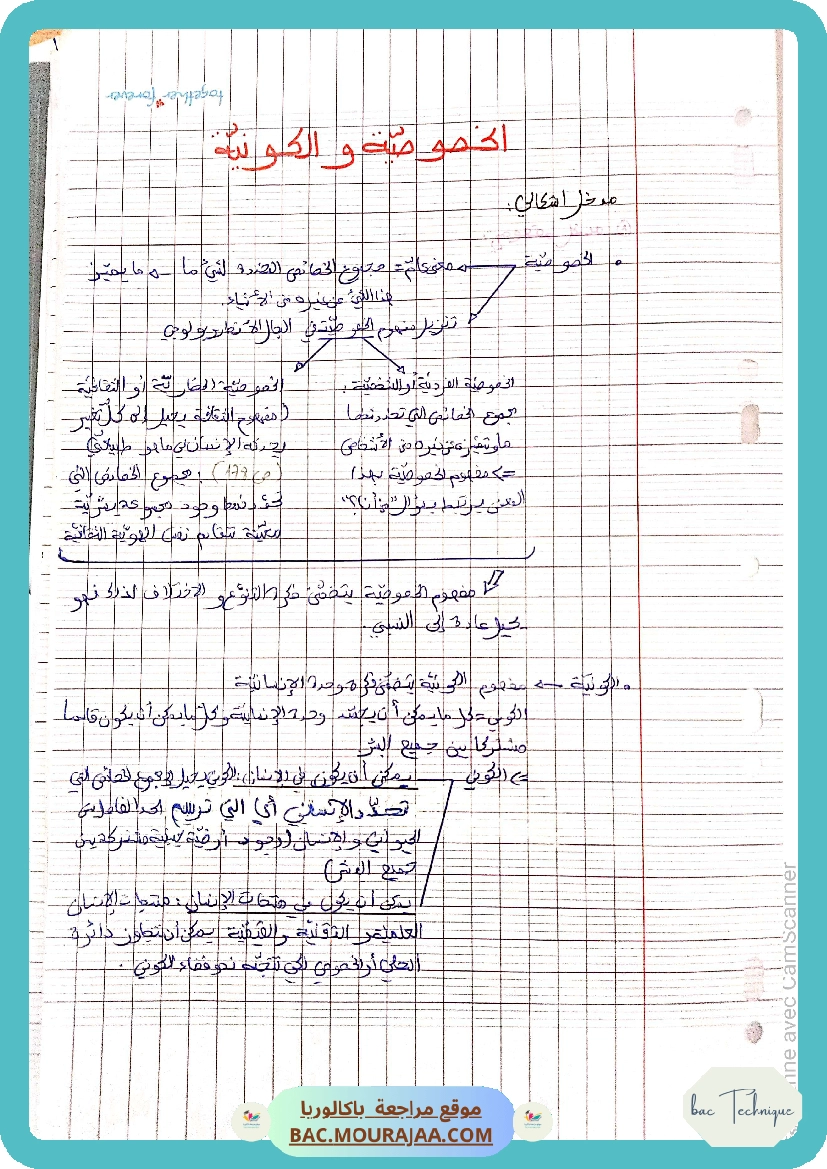 together forever
الخصوصيّة و الكونيّة
مدخل اشكالي.
• الخصوصيّة ← معنى عامّ = مجموع الخصائص المحددة لشيء ما → ما يميّز
هذا الشيء عن غيره من الأشياء.
تنزيل مفهوم الخصوصيّة في المجال الأنتروبولوجي
الخصوصيّة الفرديّة أو الشخصيّة:
مجموع الخصائص التي تحدد شخصا
ما وتميّزه عن غيره من الأشخاص
=> مفهوم الخصوصيّة بهذا
المعنى يرتبط بسؤال "من أنا؟"
الخصوصيّة الحضاريّة أو الثقافيّة
(مفهوم الثقافة يحيل إلى كلّ تغيير
يحدثه الإنسان في ما هو طبيعيّ
(ص 177)): مجموع الخصائص التي
تحدّد نمط وجود مجموعة بشريّة
معيّنة تتقاسم نفس الهويّة الثقافيّة
مفهوم الخصوصيّة يتضمّن فكرة التنوّع و الاختلاف لذلك فهو
يحيل عادة إلى النسبي.
• الكونيّة ← مفهوم الكونيّة يتضمّن فكرة وحدة الإنسانيّة
الكوني = كل ما يمكن أن يجسّد وحدة الإنسانيّة وكلّ ما يمكن أن يكون قاسما
مشتركا بين جميع البشر
=> الكوني يمكن أن يكون في الإنسان: الكوني يحيل إلى مجموع الخصائص التي
تحدّد الإنساني أي التي ترسم الحد الفاصل بين
الحيواني و الإنسان (وجود أرضيّة مشتركة بين
جميع البشر)
يمكن أن يكون في منتجات الإنسان: منتجات الإنسان
العلميّة و التقنيّة والقيميّة يمكن أن تتجاوز دائرة
المحلي أو الخصوصي لكي تتّجه نحو فضاء الكوني.
nne avec CamScanner
bac Technique
موقع مراجعة باكالوريا
BAC.MOURAJAA.COM